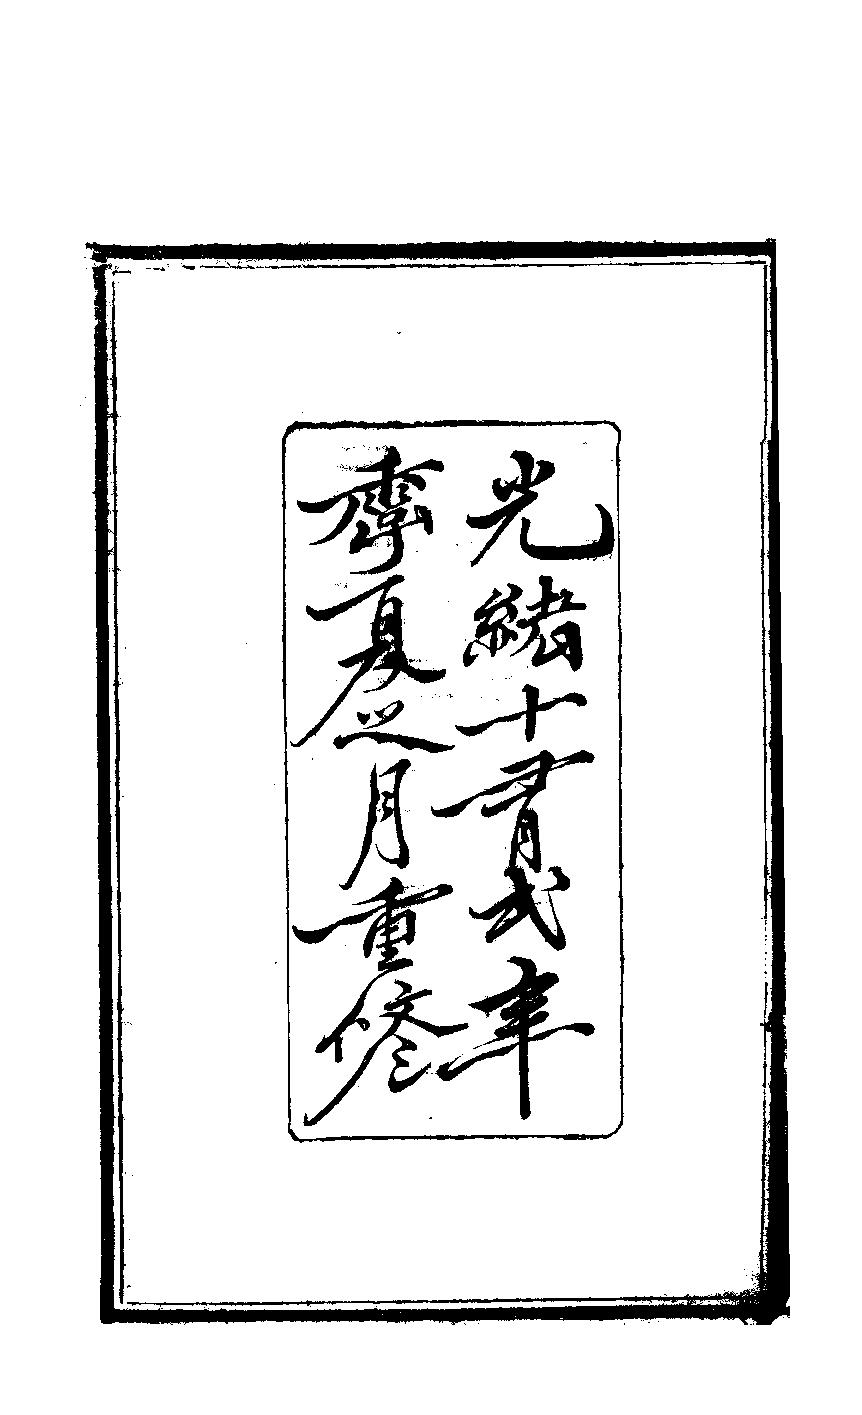 光緒十有弍年
夏之月重修